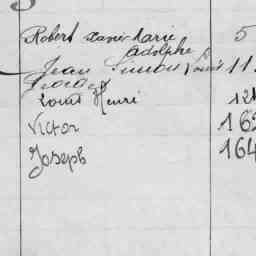 Robert Xavier Marie 5
Adolphe
Jean Simon Louis 11
Georges
Louis Henri 12
Victor 162
Joseph 164